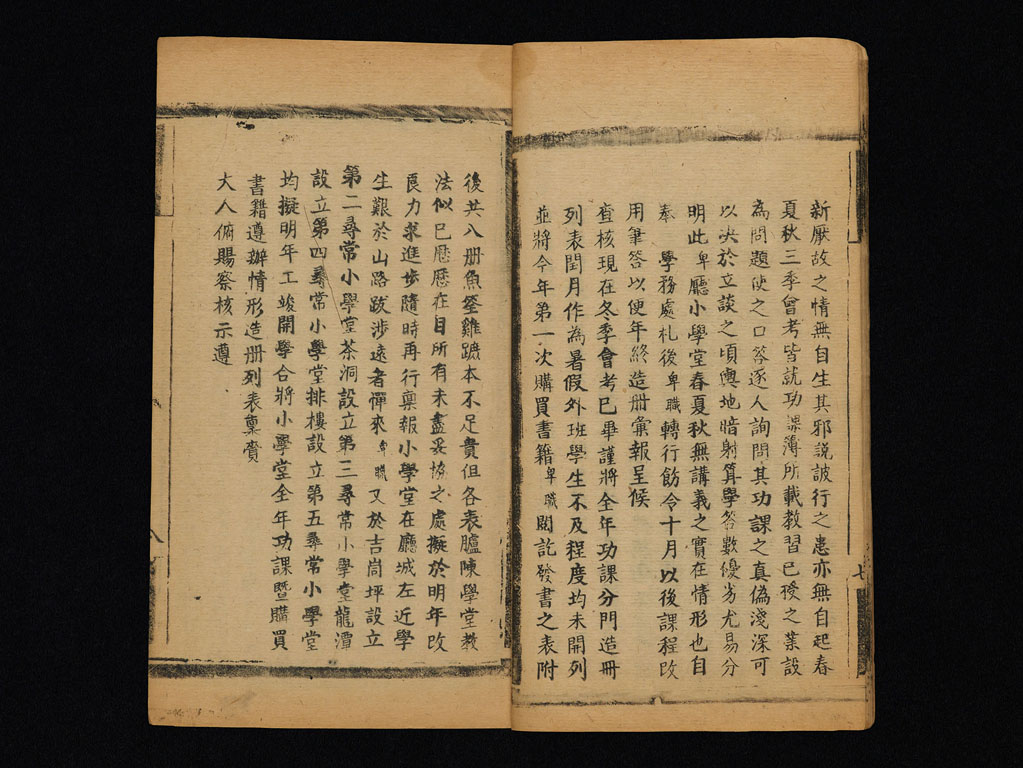 新厭故之情無自生其邪說詖行之患亦無自起春
夏秋三季會考皆就功課薄所載教習已授之業設
為問題使之口答逐人詢問其功課之真偽淺深可
以决於立談之頃輿地暗射算學答數優劣尤易分
明此卑廳小學堂春夏秋無講義之實在情形也自
奉 學務處札後卑職轉行飭令十月以後課程改
用筆答以便年終造册彙報呈候
查核現在冬季會考巳畢謹將全年功課分門造冊
列表閏月作為暑假外班學生不及程度均未開列
並將今年第一次購買書籍卑職閱訖發書之表附
後共八册魚筌雞蹠本不足貴但各表臚陳學堂教
法似巳歷歷在目所有未盡妥協之處擬於明年改
良力求進步隨時再行稟報小學堂在廳城左近學
生艱於山路跋涉遠者憚來卑職又於吉峝坪設立
第二尋常小學堂茶洞設立第三尋常小學堂龍潭
設立第四尋常小學堂排樓設立第五尋常小學堂
均擬明年工竣開學合將小學堂全年功課暨購買
書籍遵辦情形造册列表稟賫
大人俯賜察核示遵
七
八